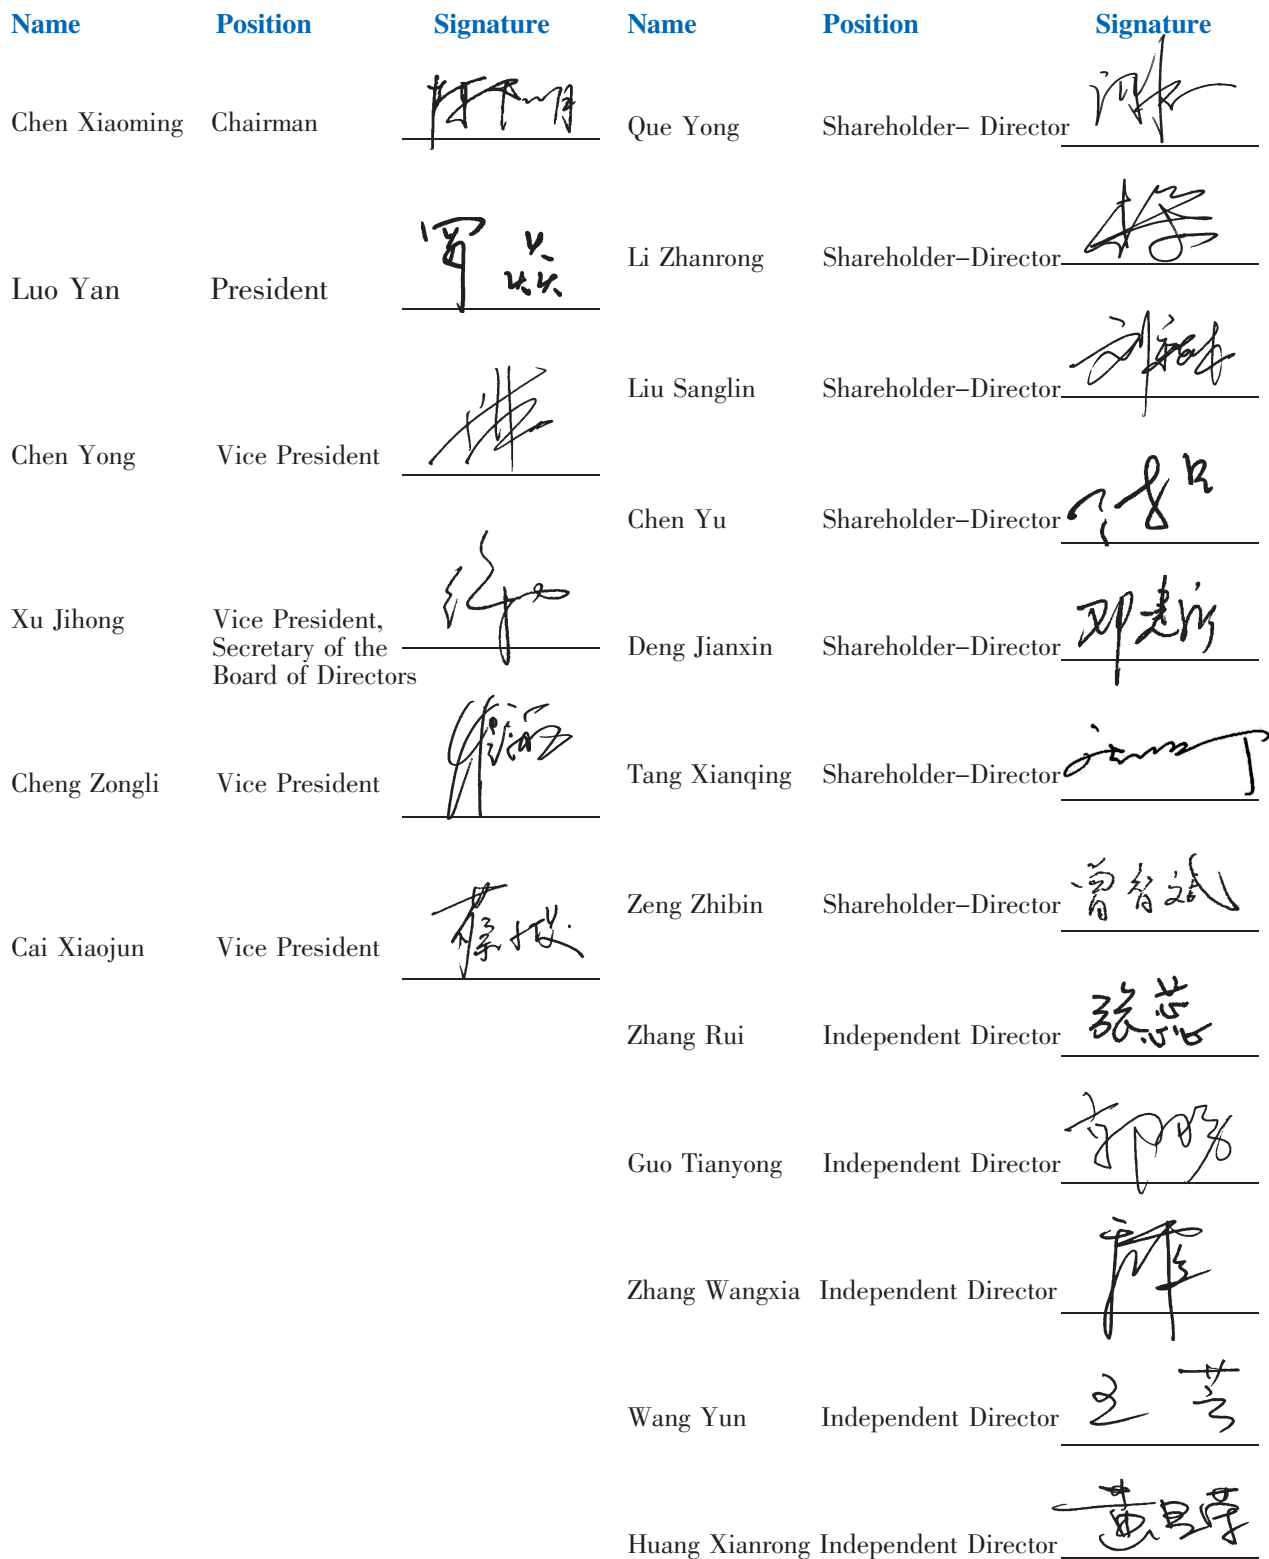 Name Position Signature
Chen Xiaoming Chairman
Luo Yan President 罗焱
Chen Yong Vice President
Xu Jihong Vice President,
Secretary of the
Board of Directors
Cheng Zongli Vice President
Cai Xiaojun Vice President
Name Position Signature
Que Yong Shareholder– Director
Li Zhanrong Shareholder–Director
Liu Sanglin Shareholder–Director
Chen Yu Shareholder–Director
Deng Jianxin Shareholder–Director 邓建新
Tang Xianqing Shareholder–Director
Zeng Zhibin Shareholder–Director 曾智斌
Zhang Rui Independent Director 张蕊
Guo Tianyong Independent Director
Zhang Wangxia Independent Director
Wang Yun Independent Director 王芸
Huang Xianrong Independent Director